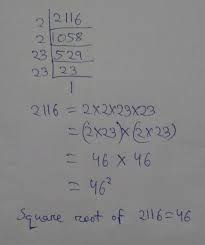 2 | 2116
2 | 1058
23 | 529
23 | 23
1
2116 = 2×2×23×23
= (2×23)×(2×23)
= 46 × 46
= 46²
Square root of 2116=46